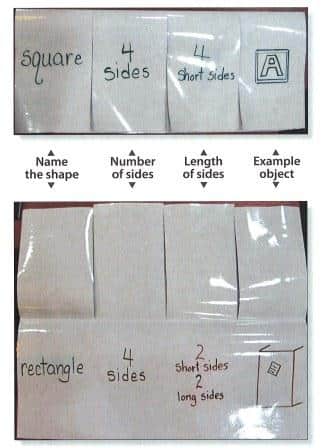 square
4
sides
4
short sides
A
Name
the shape
Number
of sides
Length
of sides
Example
object
rectangle
4
sides
2
short sides
2
long sides